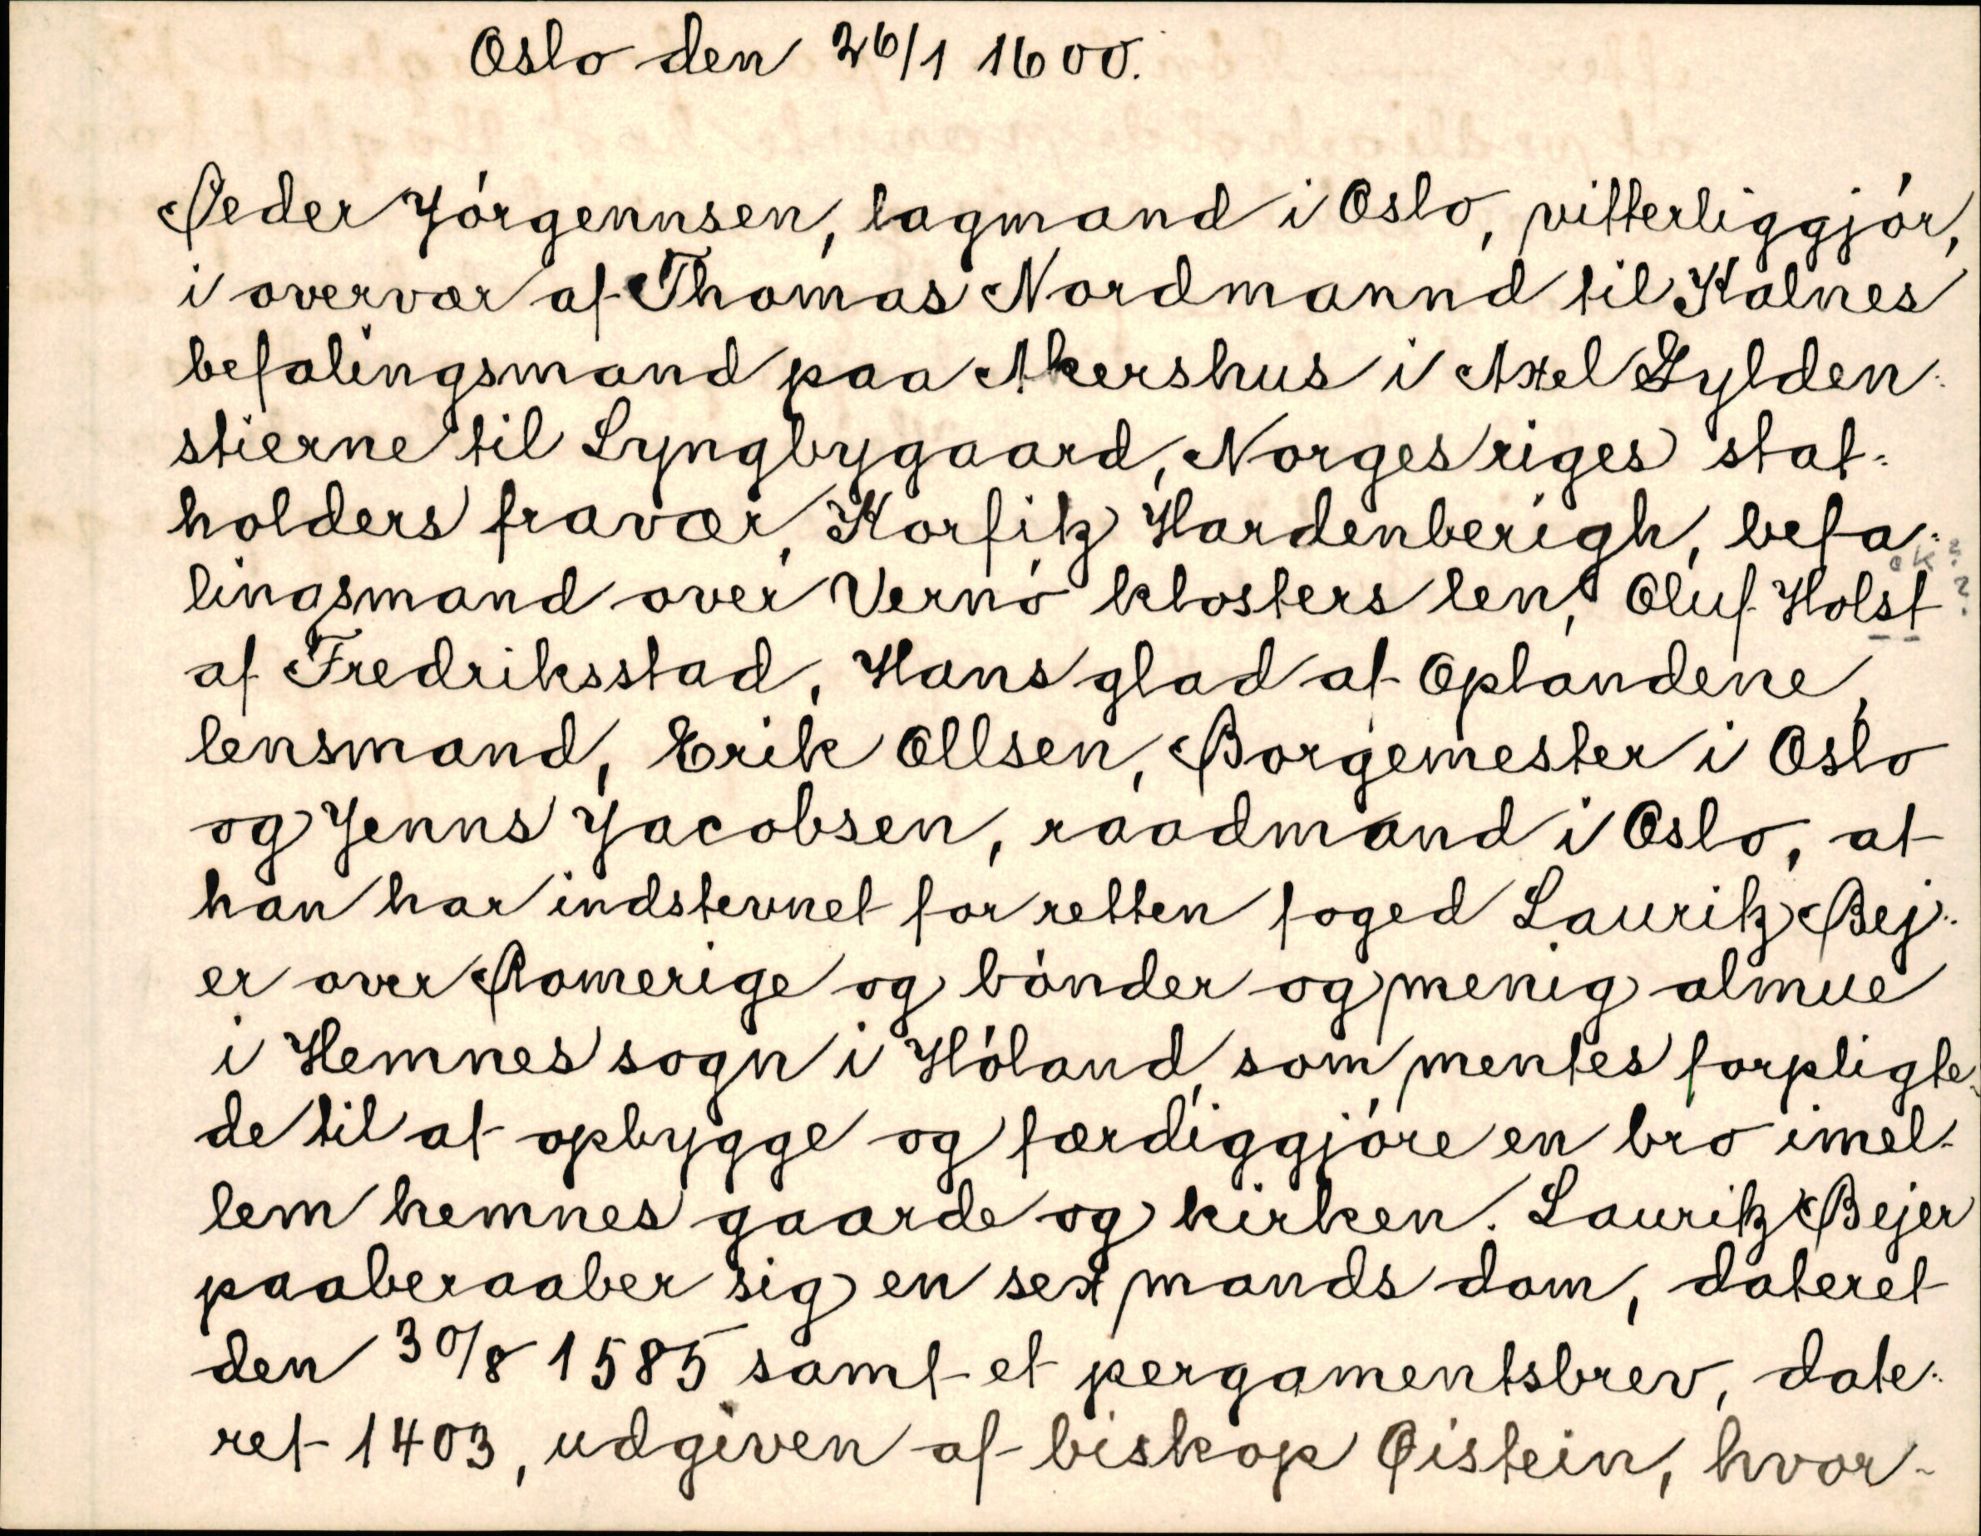 Oslo den 26/1 1600.
Peder Jörgennsen, lagmand i Oslo, vitterliggjör,
i overvær af Thomas Nordmannd til Kalnes
befalingsmand paa Akershus i Axel Gylden-
stierne til Lyngbygaard, Norges riges stat-
holders fravær, Korfitz Hardenberigh, befa-
lingsmand over Vernö klosters len, Oluf Holst
ck?
?
af Fredriksstad, Hans glad af Oplandene,
lensmand, Erik Ollsen, Borgemester i Oslo
og Jenns Jacobsen, raadmand i Oslo, at
han har indstevnet for retten foged Lauritz Bej-
er over Romerige og bönder og menig almue
i Hemnes sogn i Höland, som mentes forpligte-
de til at opbygge og færdiggjöre en bro imel-
lem hemnes gaarde og kirken. Lauritz Bejer
paaberaaber sig en sex mands dom, dateret
den 30/8 1585 samt et pergamentsbrev, date-
ret 1403, udgiven af biskop Øistein, hvor-